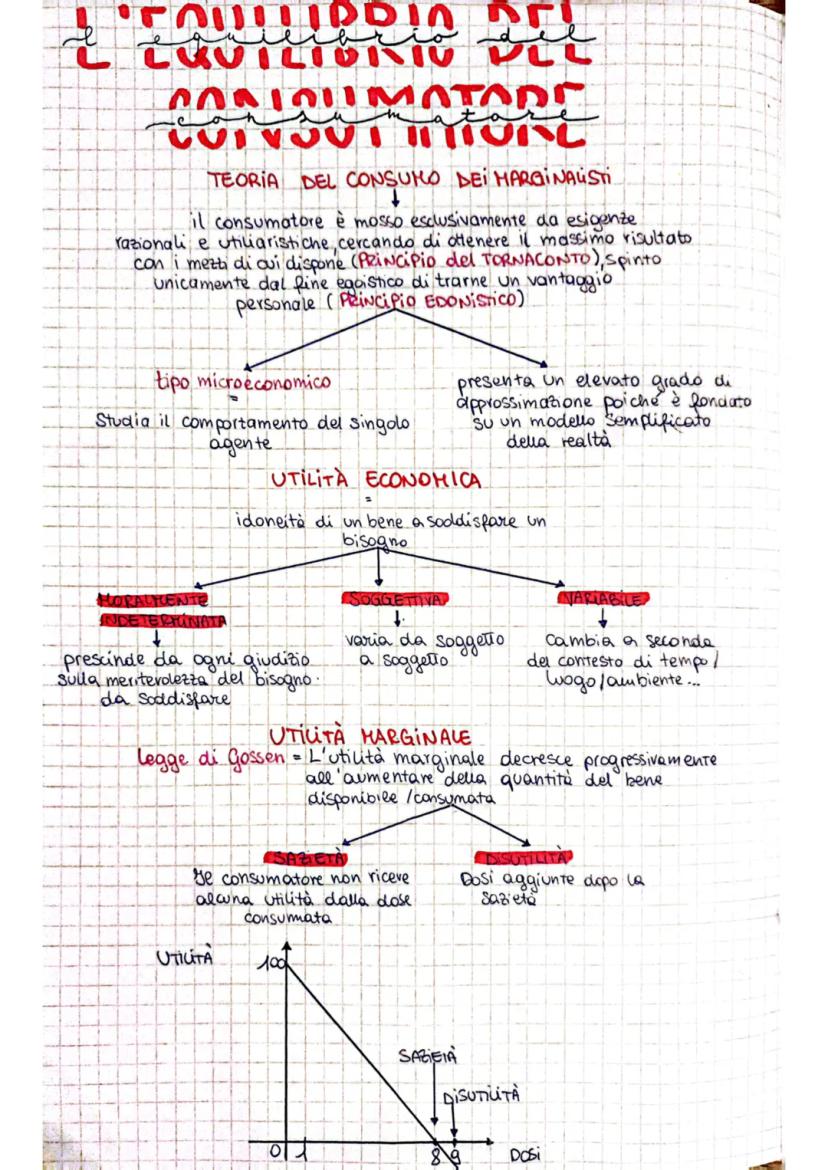 L'EQUILIBRIO DEL
l'equilibrio del
CONSUMATORE
consumatore
TEORIA DEL CONSUMO DEI MARGINALISTI
il consumatore è mosso esclusivamente da esigenze
razionali e utiliaristiche, cercando di ottenere il massimo risultato
con i mezzi di cui dispone (PRINCIPIO del TORNACONTO), spinto
unicamente dal fine egoistico di trarne un vantaggio
personale (PRINCIPIO EDONISTICO)
tipo microeconomico
=
Studia il comportamento del singolo
agente
presenta un elevato grado di
approssimazione poiché è fondato
su un modello semplificato
della realtà
UTILITÀ ECONOMICA
=
idoneità di un bene a soddisfare un
bisogno
MORALMENTE
INDETERMINATA
prescinde da ogni giudizio
sulla meritevolezza del bisogno
da soddisfare
SOGGETTIVA
varia da soggetto
a soggetto
VARIABILE
cambia a seconda
del contesto di tempo/
luogo/ambiente...
UTILITÀ MARGINALE
legge di Gossen = L'utilità marginale decresce progressivamente
all'aumentare della quantità del bene
disponibile/consumata
SAZIETÀ
Il consumatore non riceve
alcuna utilità dalla dose
consumata
DISUTILITÀ
Dosi aggiunte dopo la
sazietà
UTILITÀ
100
SAZIETÀ
DISUTILITÀ
0 1 8 9 DOSI